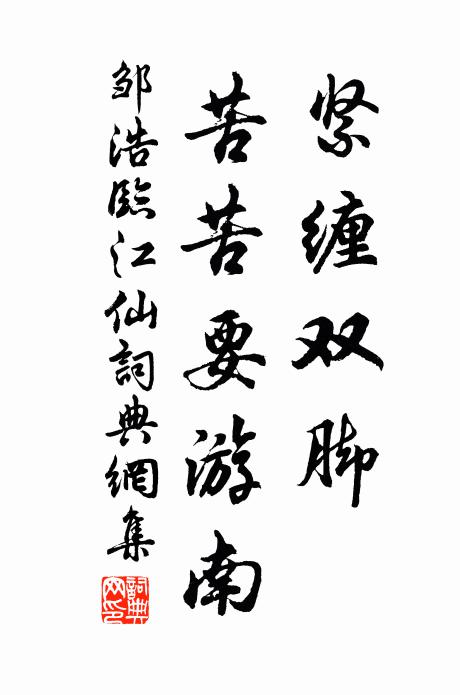 紧缠双脚
苦苦要游南
邹浩臨江仙詞典網集
詞典网印